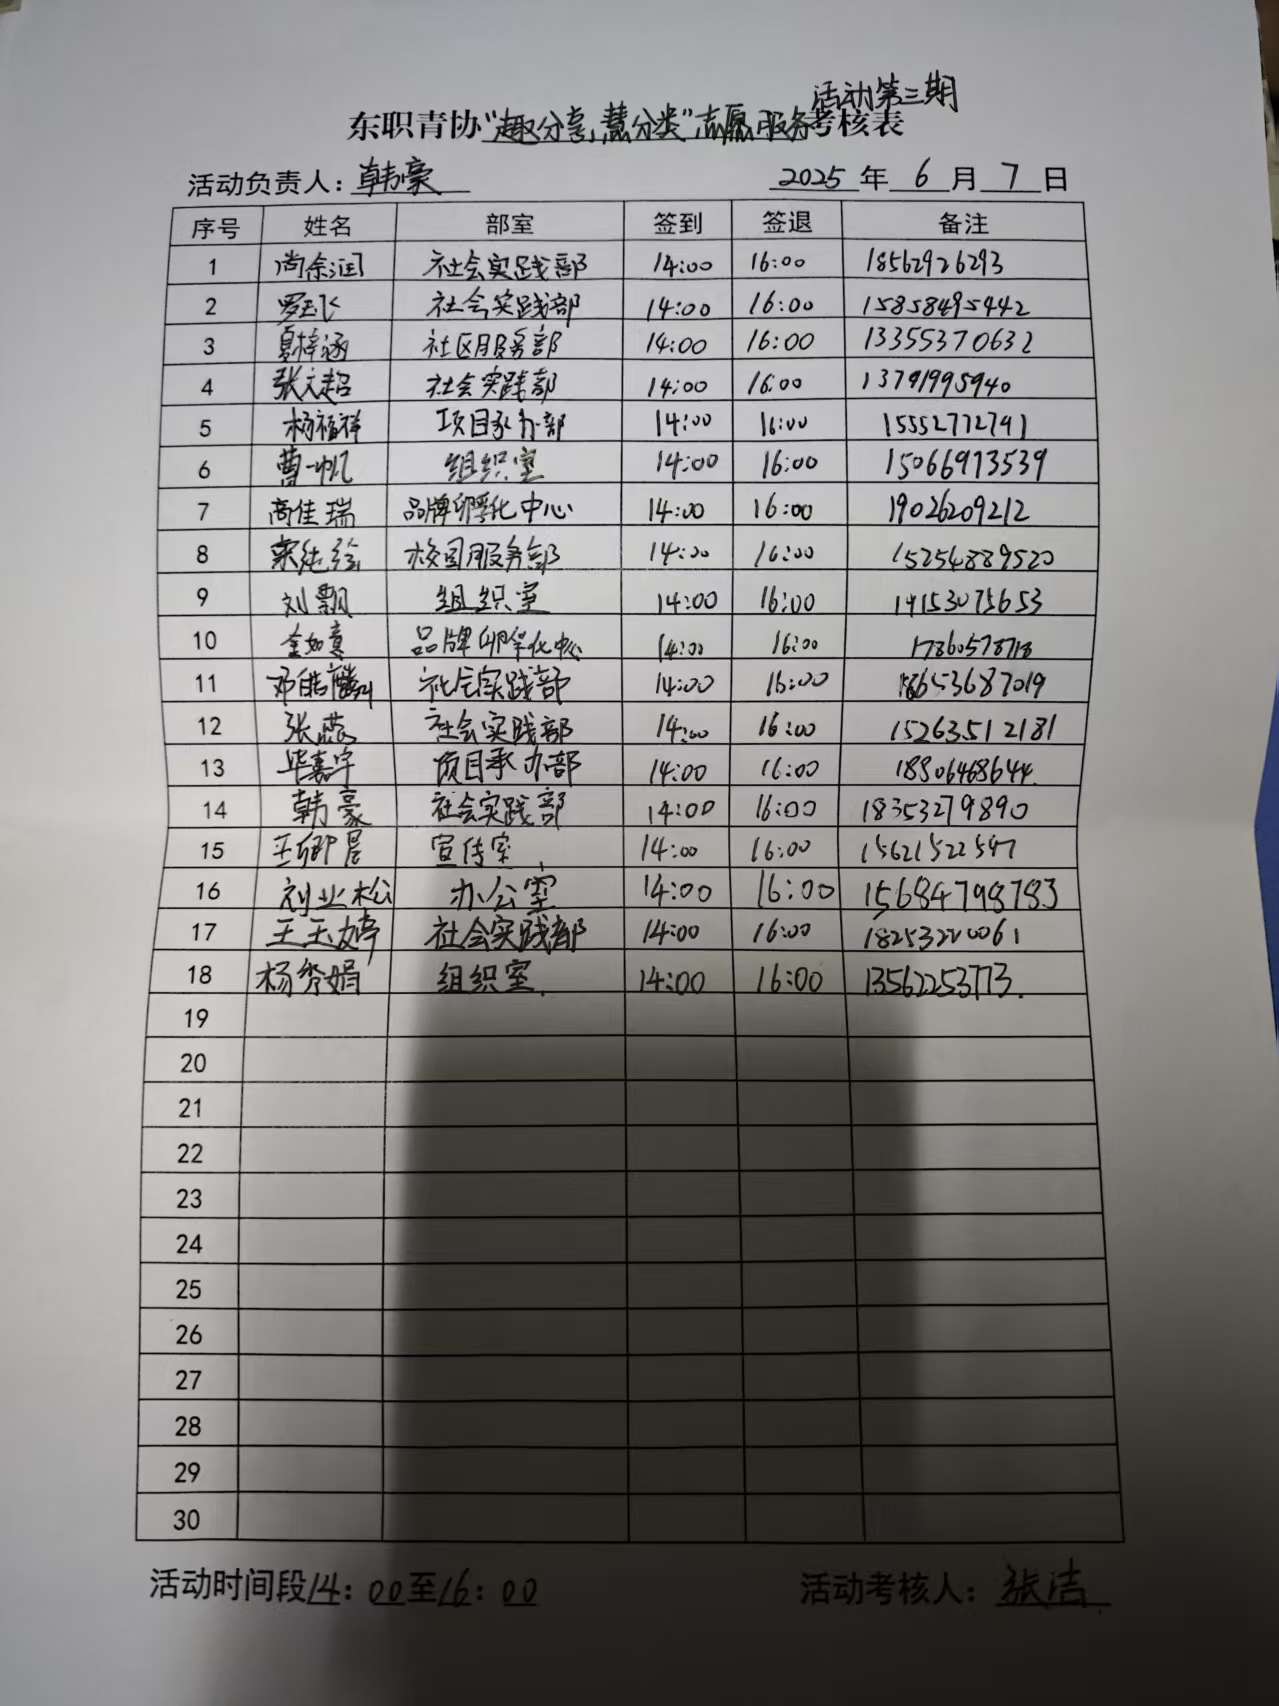 活动第三期
东职青协“趣分享,慧分类”志愿服务考核表
活动负责人：韩豪 2025年6月7日
序号 姓名 部室 签到 签退 备注
1 尚余润 社会实践部 14:00 16:00 18562926293
2 罗玉飞 社会实践部 14:00 16:00 15858495442
3 夏梓涵 社区服务部 14:00 16:00 13355370632
4 张文超 社会实践部 14:00 16:00 13791995940
5 杨福祥 项目承办部 14:00 16:00 15552772791
6 曹一帆 组织室 14:00 16:00 15066913539
7 高佳瑞 品牌孵化中心 14:00 16:00 19026209212
8 校园服务部 14:00 16:00 15254889520
9 刘飘 组织室 14:00 16:00
10 金如意 品牌孵化中心 14:00 16:00
11 邓皓麟 社会实践部 14:00 16:00 18653687019
12 张蕊 社会实践部 14:00 16:00 15263512181
13 毕嘉宇 项目承办部 14:00 16:00
14 韩豪 社会实践部 14:00 16:00 18353279890
15 王卿晨 宣传室 14:00 16:00 15621522597
16 刘业松 办公室 14:00 16:00 15684798783
17 王玉婷 社会实践部 14:00 16:00 18253220061
18 杨秀娟 组织室. 14:00 16:00 13562253773.
19
20
21
22
23
24
25
26
27
28
29
30
活动时间段14：00至16：00 活动考核人：张洁